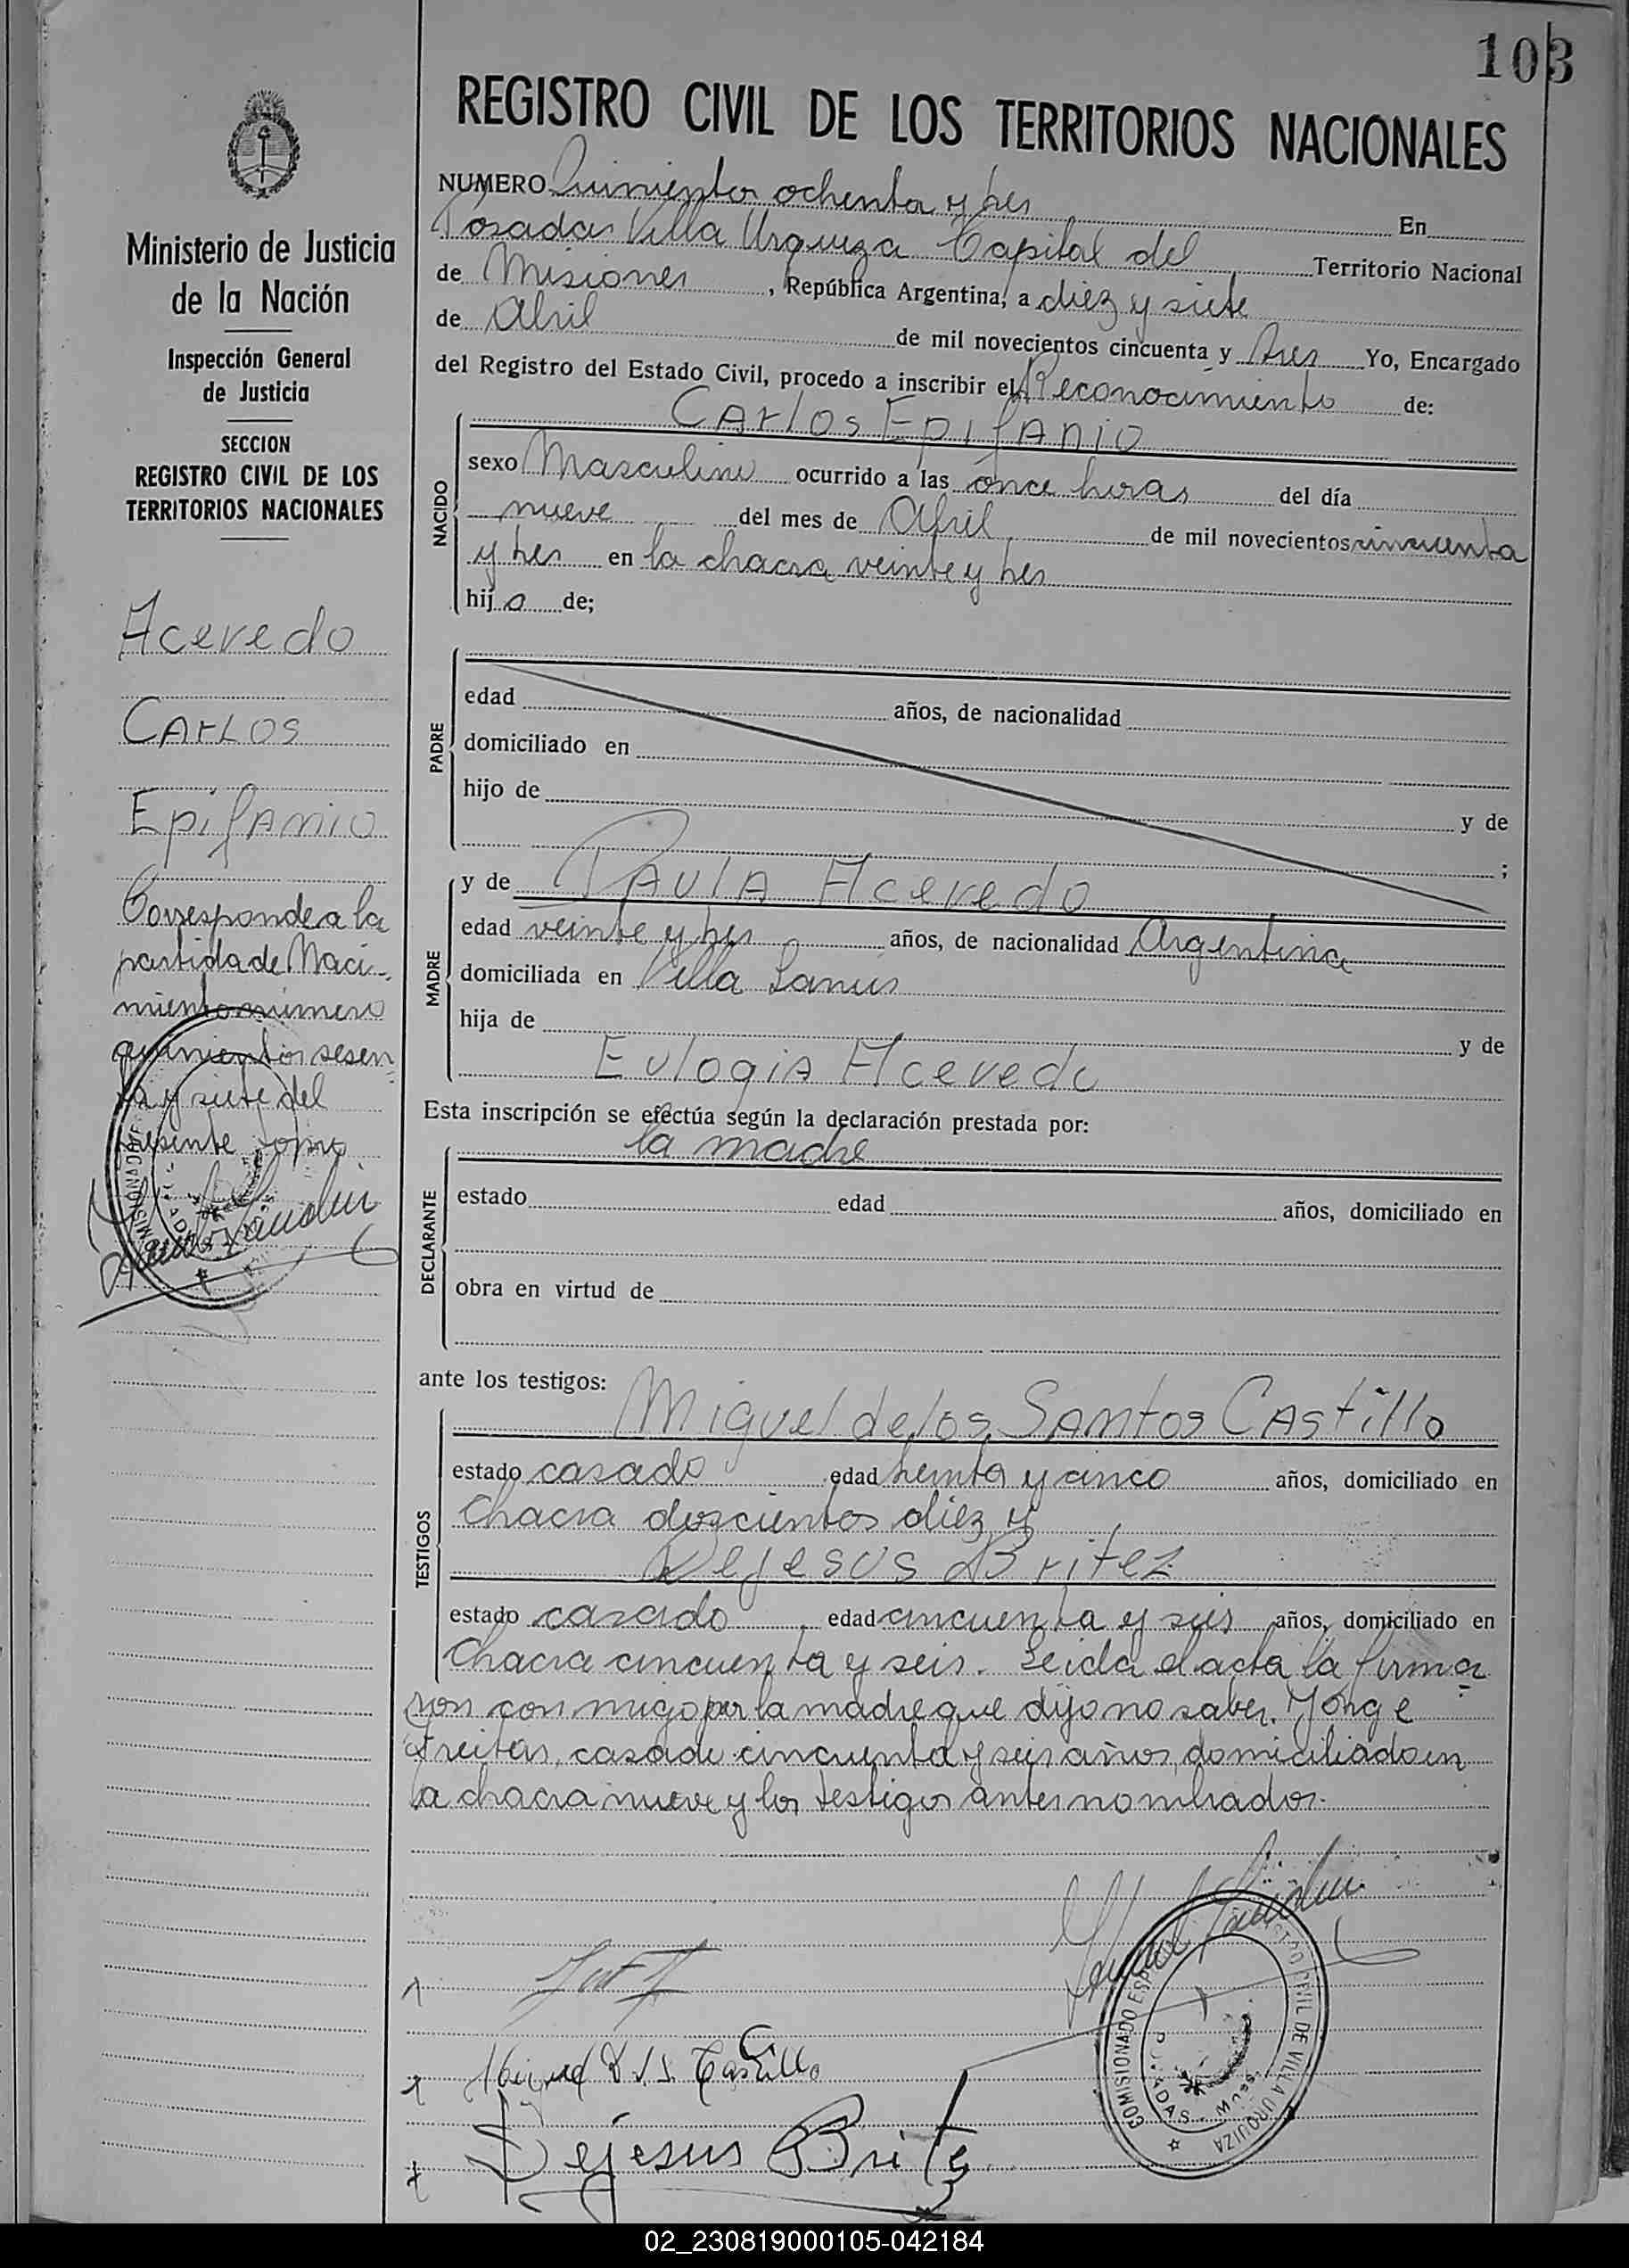 103
REGISTRO CIVIL DE LOS TERRITORIOS NACIONALES
Ministerio de Justicia
de la Nación
Inspección General
de Justicia
SECCION
REGISTRO CIVIL DE LOS
TERRITORIOS NACIONALES
Acevedo
Carlos
Epifanio
Corresponde a la
partida de Naci-
miento número
quinientos sesen
ta y siete del
presente tomo
NUMERO Quinientos ochenta y tres En
Posadas Villa Urquiza Capital del Territorio Nacional
de Misiones, República Argentina, a diez y siete
de Abril de mil novecientos cincuenta y tres Yo, Encargado
del Registro del Estado Civil, procedo a inscribir el Reconocimiento de:
NACIDO
Carlos Epifanio
sexo Masculino ocurrido a las once horas del día
nueve del mes de Abril de mil novecientos cincuenta
y tres en la chacra veinte y tres
hijo de;
PADRE
edad años, de nacionalidad
domiciliado en
hijo de y de
;
MADRE
y de Paula Acevedo
edad veinte y tres años, de nacionalidad Argentina
domiciliada en Villa Lanús
hija de y de
Eulogia Acevedo
Esta inscripción se efectúa según la declaración prestada por:
la madre
DECLARANTE
estado edad años, domiciliado en
obra en virtud de
ante los testigos:
TESTIGOS
Miguel de los Santos Castillo
estado casado edad treinta y cinco años, domiciliado en
Chacra doscientos diez y
Dejesus Britez
estado casado edad cincuenta y seis años, domiciliado en
Chacra cincuenta y seis. Leida el acta la firma
ron con migo por la madre que dijo no saber. Jorge
Freitas, casado cincuenta y seis años, domiciliado en
la chacra nueve y los testigos antes nombrados.
Miguel D. l. S. Castillo
Dejesus Britez
COMISIONADO ESP REGISTRO CIVIL DE VILLA URQUIZA
POSADAS - MNES.
02_230819000105-042184